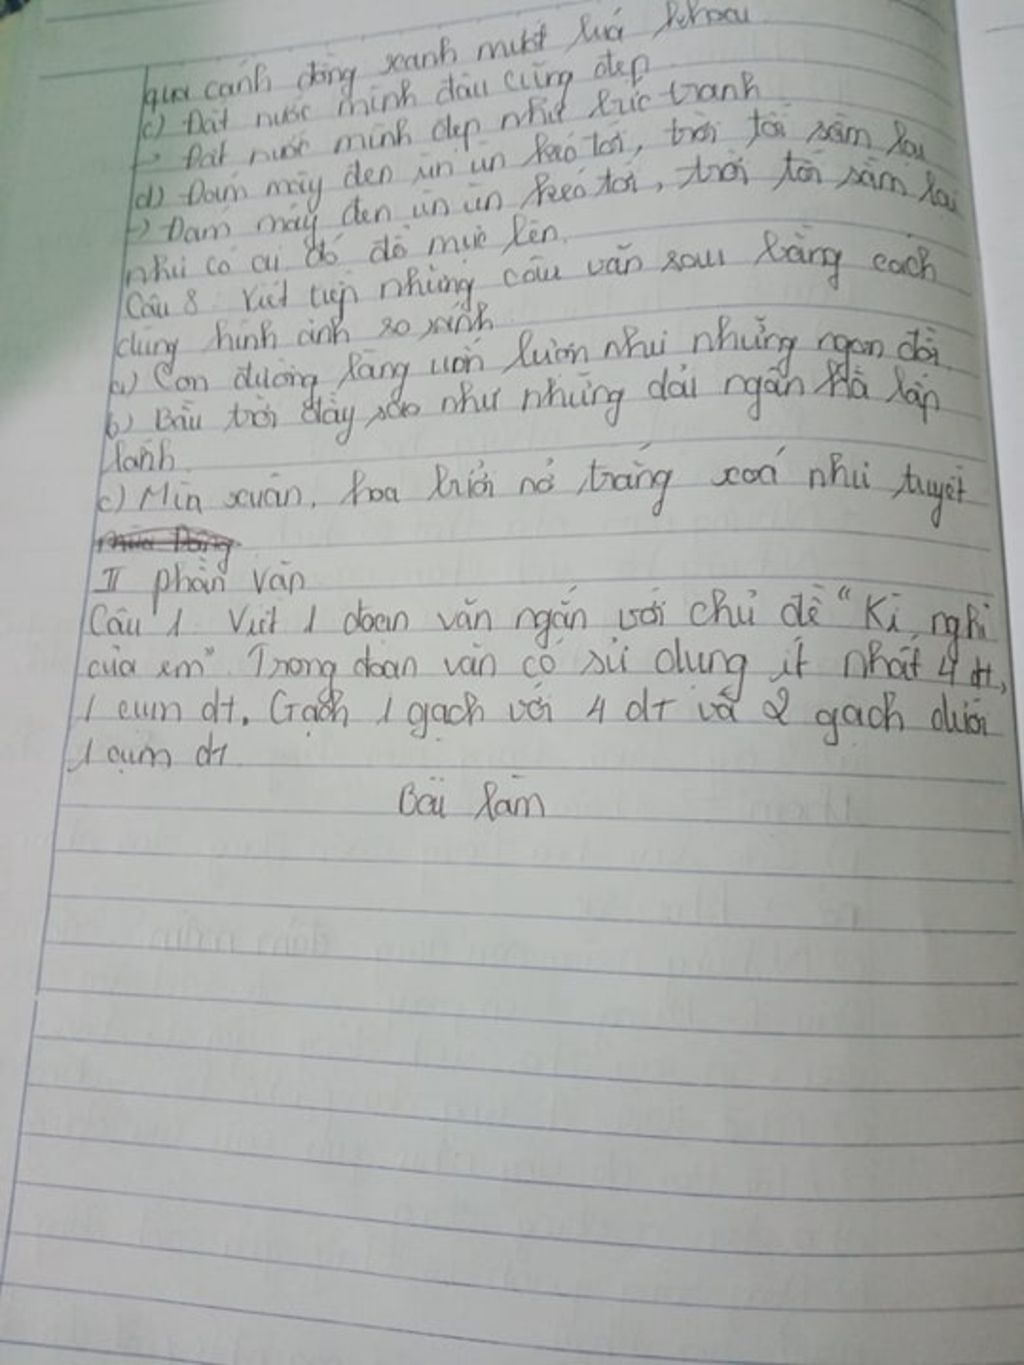 qua cánh đồng xanh mướt lúa khoai
c) Đất nước mình đâu cũng đẹp
-> Đất nước mình đẹp như bức tranh
d) Đám mây đen ùn ùn kéo tới, trời tối sầm lại
-> Đám mây đen ùn ùn kéo tới, trời tối sầm lại
như có ai đó đổ mực lên.
Câu 8 Viết tiếp những câu văn sau bằng cách
dùng hình ảnh so sánh
a) Con đường làng uốn lượn như những ngọn đồi
b) Bầu trời đầy sao như những dải ngân Hà lấp
lánh
c) Mùa xuân, hoa bưởi nở trắng xoá như tuyết
mùa Đông
II phần văn
Câu 1 Viết 1 đoạn văn ngắn với chủ đề "Kì nghỉ
của em" Trong đoạn văn có sử dụng ít nhất 4 dt,
1 cụm dt. Gạch 1 gạch với 4 dt và 2 gạch dưới
1 cụm dt
Bài làm